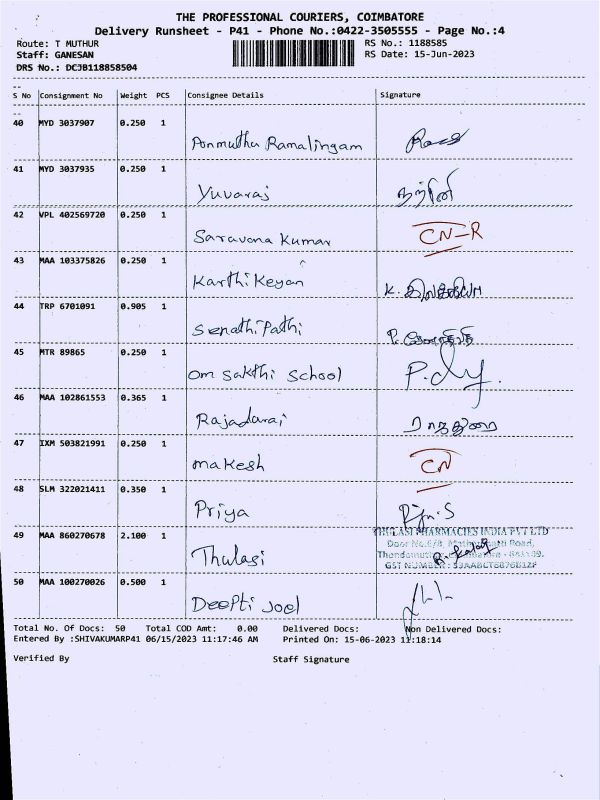 THE PROFESSIONAL COURIERS, COIMBATORE
Delivery Runsheet - P41 - Phone No.:0422-3505555 - Page No.:4
Route: T MUTHUR RS No.: 1188585
Staff: GANESAN RS Date: 15-Jun-2023
DRS No.: DCJB118858504
S No Consignment No Weight PCS Consignee Details Signature
40 MYD 3037907 0.250 1
Ponmuthu Ramalingam
41 MYD 3037935 0.250 1
Yuvaraj
42 VPL 402569720 0.250 1
Saravona Kumar CN-R
43 MAA 103375826 0.250 1
Karthi Keyan K.
44 TRP 6701091 0.905 1
Senathi Pathi P.
45 MTR 89865 0.250 1
Om Sakthi School
46 MAA 102861553 0.365 1
Rajadurai ராஜதுரை
47 IXM 503821991 0.250 1
makesh CN
48 SLM 322021411 0.350 1
Priya
49 MAA 860270678 2.100 1 THULASI PHARMACIES INDIA PVT LTD
Thulasi
GST NUMBER :
50 MAA 100270026 0.500 1
Deepti Joel
Total No. Of Docs: 50 Total COD Amt: 0.00 Delivered Docs: Non Delivered Docs:
Entered By :SHIVAKUMARP41 06/15/2023 11:17:46 AM Printed On: 15-06-2023 11:18:14
Verified By Staff Signature